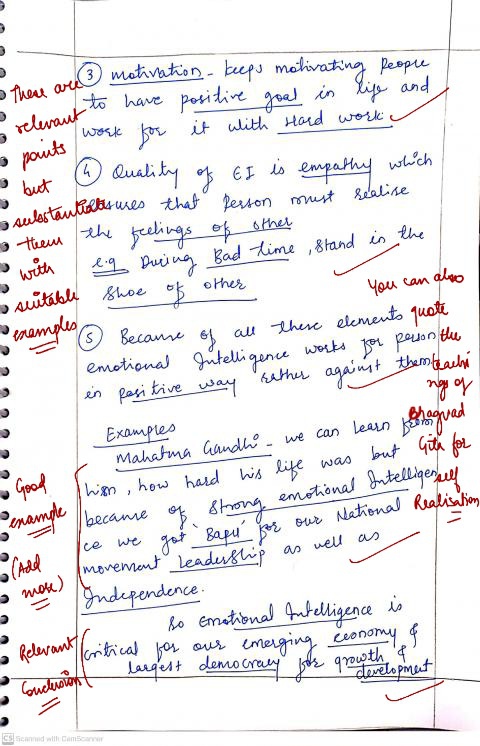 ③ motivation - keeps motivating People
to have positive goal in life and
work for it with Hard work
④ Quality of EI is empathy which
ensures that person must realise
the feelings of other
e.g During Bad time, stand in the
shoe of other
⑤ Because of all these elements
emotional Intelligence works for person
in positive way rather against them
Examples
Mahatma Gandhi - we can learn from
him, how hard his life was but
because of strong emotional Intelligen
ce we got 'Bapu' for our National
movement Leadership as well as
Independence.
so Emotional Intelligence is
critical for our emerging economy &
largest democracy for growth &
development
These are
relevant
points
but
substantiate
them
with
suitable
examples
You can also
quote
the
teachi
ngs of
Bhagvad
Gita for
self
Realisation
Good
example
(Add
more)
Relevant
Conclusion
CS Scanned with CamScanner